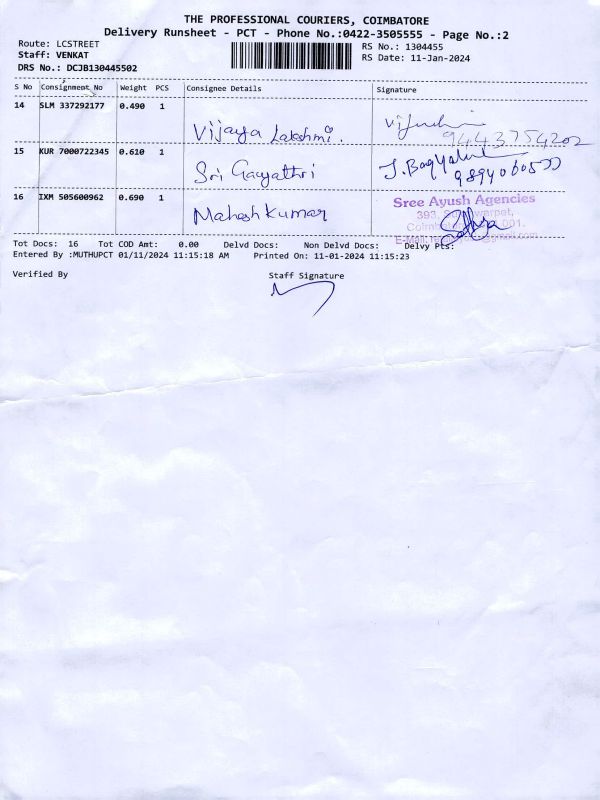 THE PROFESSIONAL COURIERS, COIMBATORE
Delivery Runsheet - PCT - Phone No.:0422-3505555 - Page No.:2
Route: LCSTREET
Staff: VENKAT
DRS No.: DCJB130445502
RS No.: 1304455
RS Date: 11-Jan-2024
S No Consignment No Weight PCS Consignee Details Signature
14 SLM 337292177 0.490 1
Vijaya Lakshmi.
9443754202
15 KUR 7000722345 0.610 1
Sri Gayathri
16 IXM 505600962 0.690 1
Mahesh kumar
Sree Ayush Agencies
393,
Tot Docs: 16 Tot COD Amt: 0.00 Delvd Docs: Non Delvd Docs: Delvy Pts:
Entered By :MUTHUPCT 01/11/2024 11:15:18 AM Printed On: 11-01-2024 11:15:23
Verified By Staff Signature